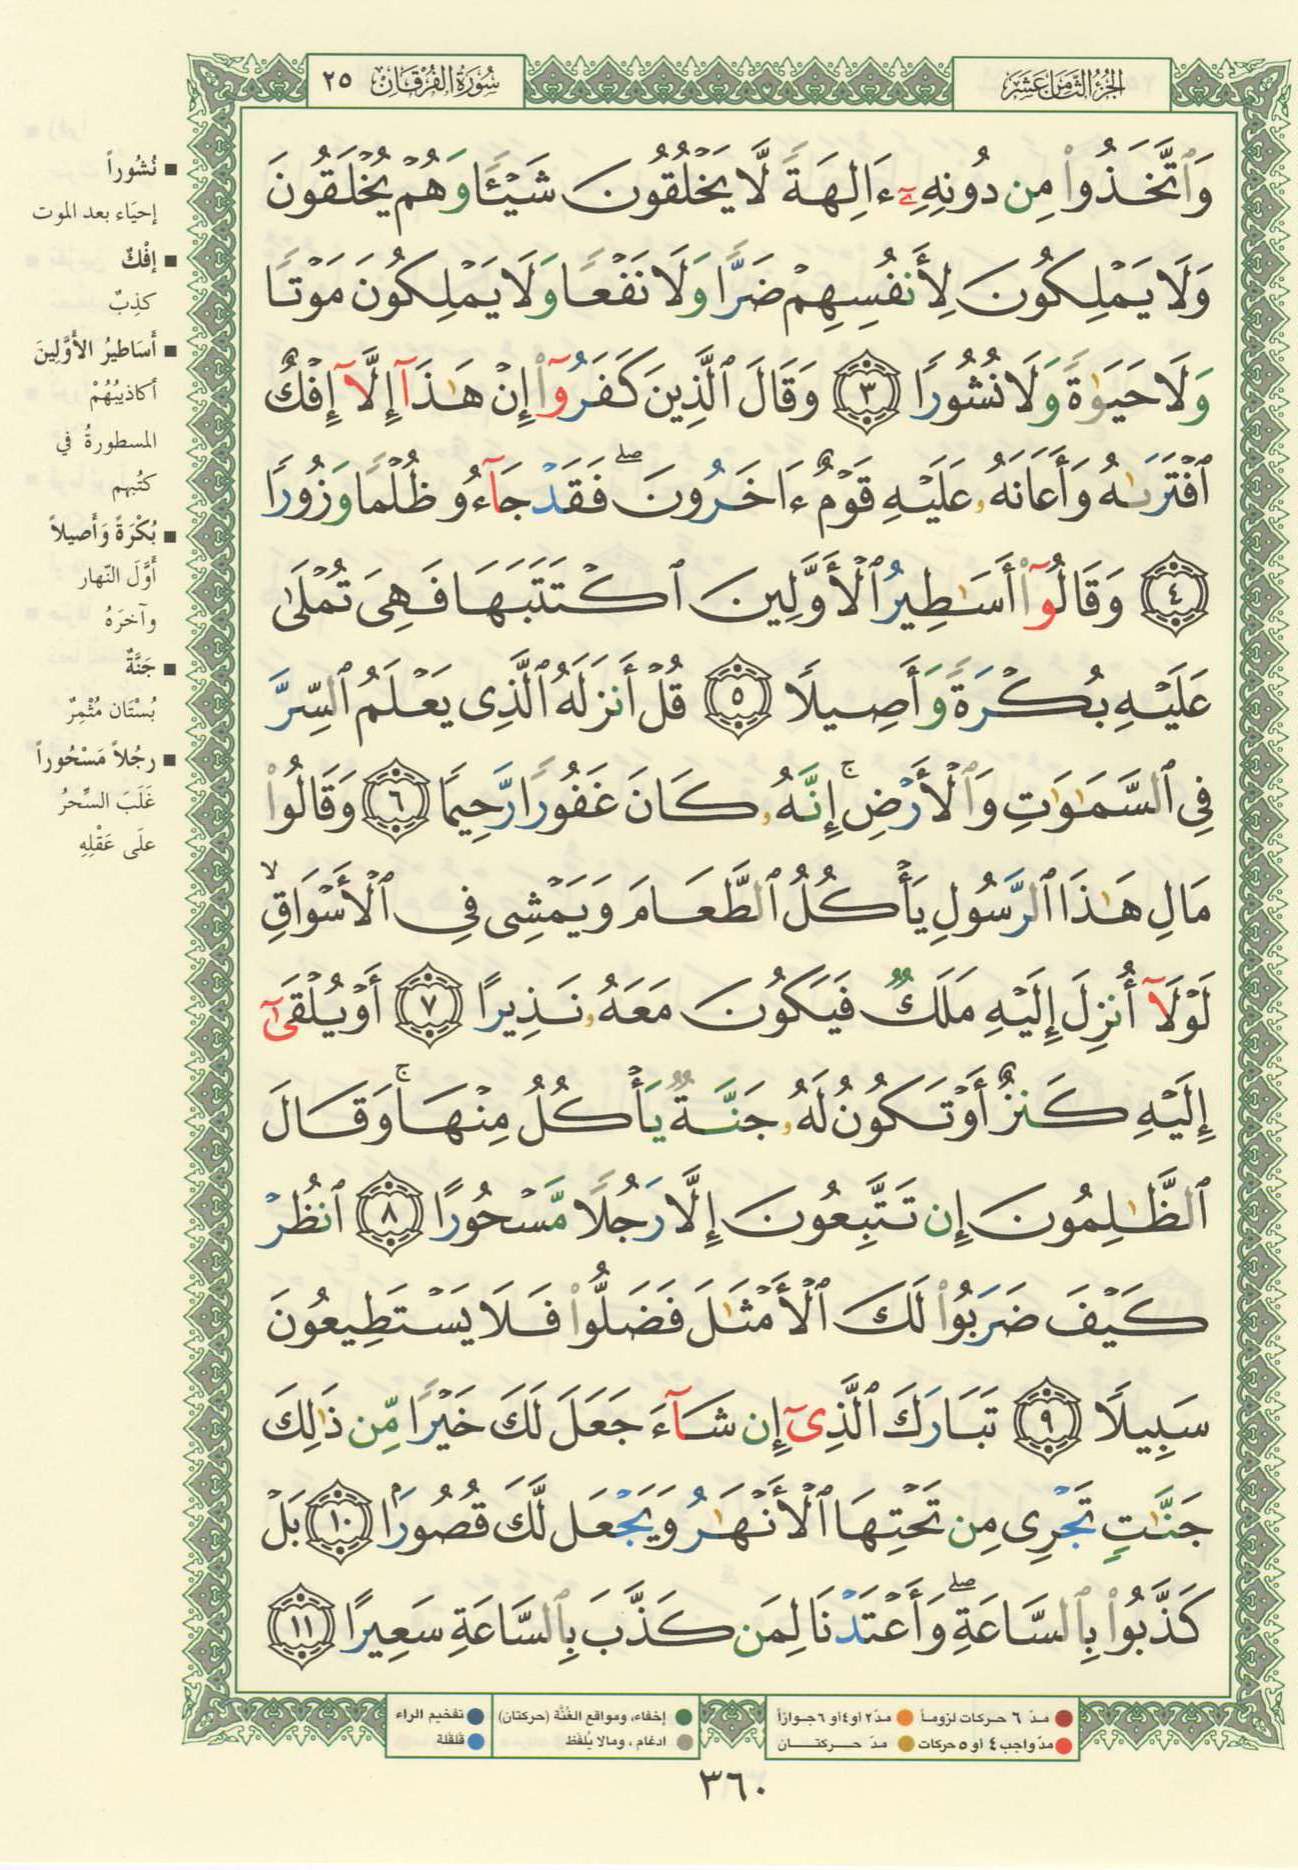 الجزء الثامن عشر
سورة الفرقان ٢٥
وَٱتَّخَذُوا۟ مِن دُونِهِۦٓ ءَالِهَةً لَّا يَخْلُقُونَ شَيْـًٔا وَهُمْ يُخْلَقُونَ
وَلَا يَمْلِكُونَ لِأَنفُسِهِمْ ضَرًّا وَلَا نَفْعًا وَلَا يَمْلِكُونَ مَوْتًا
وَلَا حَيَوٰةً وَلَا نُشُورًا ٣ وَقَالَ ٱلَّذِينَ كَفَرُوٓا۟ إِنْ هَـٰذَآ إِلَّآ إِفْكٌ
ٱفْتَرَىٰهُ وَأَعَانَهُۥ عَلَيْهِ قَوْمٌ ءَاخَرُونَ ۖ فَقَدْ جَآءُو ظُلْمًا وَزُورًا
٤ وَقَالُوٓا۟ أَسَـٰطِيرُ ٱلْأَوَّلِينَ ٱكْتَتَبَهَا فَهِىَ تُمْلَىٰ
عَلَيْهِ بُكْرَةً وَأَصِيلًا ٥ قُلْ أَنزَلَهُ ٱلَّذِى يَعْلَمُ ٱلسِّرَّ
فِى ٱلسَّمَـٰوَٰتِ وَٱلْأَرْضِ ۚ إِنَّهُۥ كَانَ غَفُورًا رَّحِيمًا ٦ وَقَالُوا۟
مَالِ هَـٰذَا ٱلرَّسُولِ يَأْكُلُ ٱلطَّعَامَ وَيَمْشِى فِى ٱلْأَسْوَاقِ ۙ
لَوْلَآ أُنزِلَ إِلَيْهِ مَلَكٌ فَيَكُونَ مَعَهُۥ نَذِيرًا ٧ أَوْ يُلْقَىٰٓ
إِلَيْهِ كَنزٌ أَوْ تَكُونُ لَهُۥ جَنَّةٌ يَأْكُلُ مِنْهَا ۚ وَقَالَ
ٱلظَّـٰلِمُونَ إِن تَتَّبِعُونَ إِلَّا رَجُلًا مَّسْحُورًا ٨ ٱنظُرْ
كَيْفَ ضَرَبُوا۟ لَكَ ٱلْأَمْثَـٰلَ فَضَلُّوا۟ فَلَا يَسْتَطِيعُونَ
سَبِيلًا ٩ تَبَارَكَ ٱلَّذِىٓ إِن شَآءَ جَعَلَ لَكَ خَيْرًا مِّن ذَٰلِكَ
جَنَّـٰتٍ تَجْرِى مِن تَحْتِهَا ٱلْأَنْهَـٰرُ وَيَجْعَل لَّكَ قُصُورًۢا ١٠ بَلْ
كَذَّبُوا۟ بِٱلسَّاعَةِ ۖ وَأَعْتَدْنَا لِمَن كَذَّبَ بِٱلسَّاعَةِ سَعِيرًا ١١
■ نُشُوراً
إحيَاء بعد الموت
■ إفْكٌ
كذِبٌ
■ أَسَاطيرُ الأَوَّلينَ
أكاذيبُهُمْ
المسطورةُ في
كتُبهم
■ بُكْرَةً وَأَصيلاً
أوَّلَ النّهار
وآخرَهُ
■ جَنَّةٌ
بُسْتَان مُثْمِرٌ
■ رجُلاً مَسْحُوراً
غَلَبَ السِّحرُ
علَى عَقْلِهِ
مدّ ٦ حركات لزوماً ● مدّ ٢ او ٤ او ٦ جوازاً
مدّ واجب ٤ او ٥ حركات ● مدّ حركتــان
إخفاء، ومواقع الغُنَّة (حركتان) ● تفخيم الراء
ادغام ، ومالا يُلفَظ ● قلقلة
٣٦٠